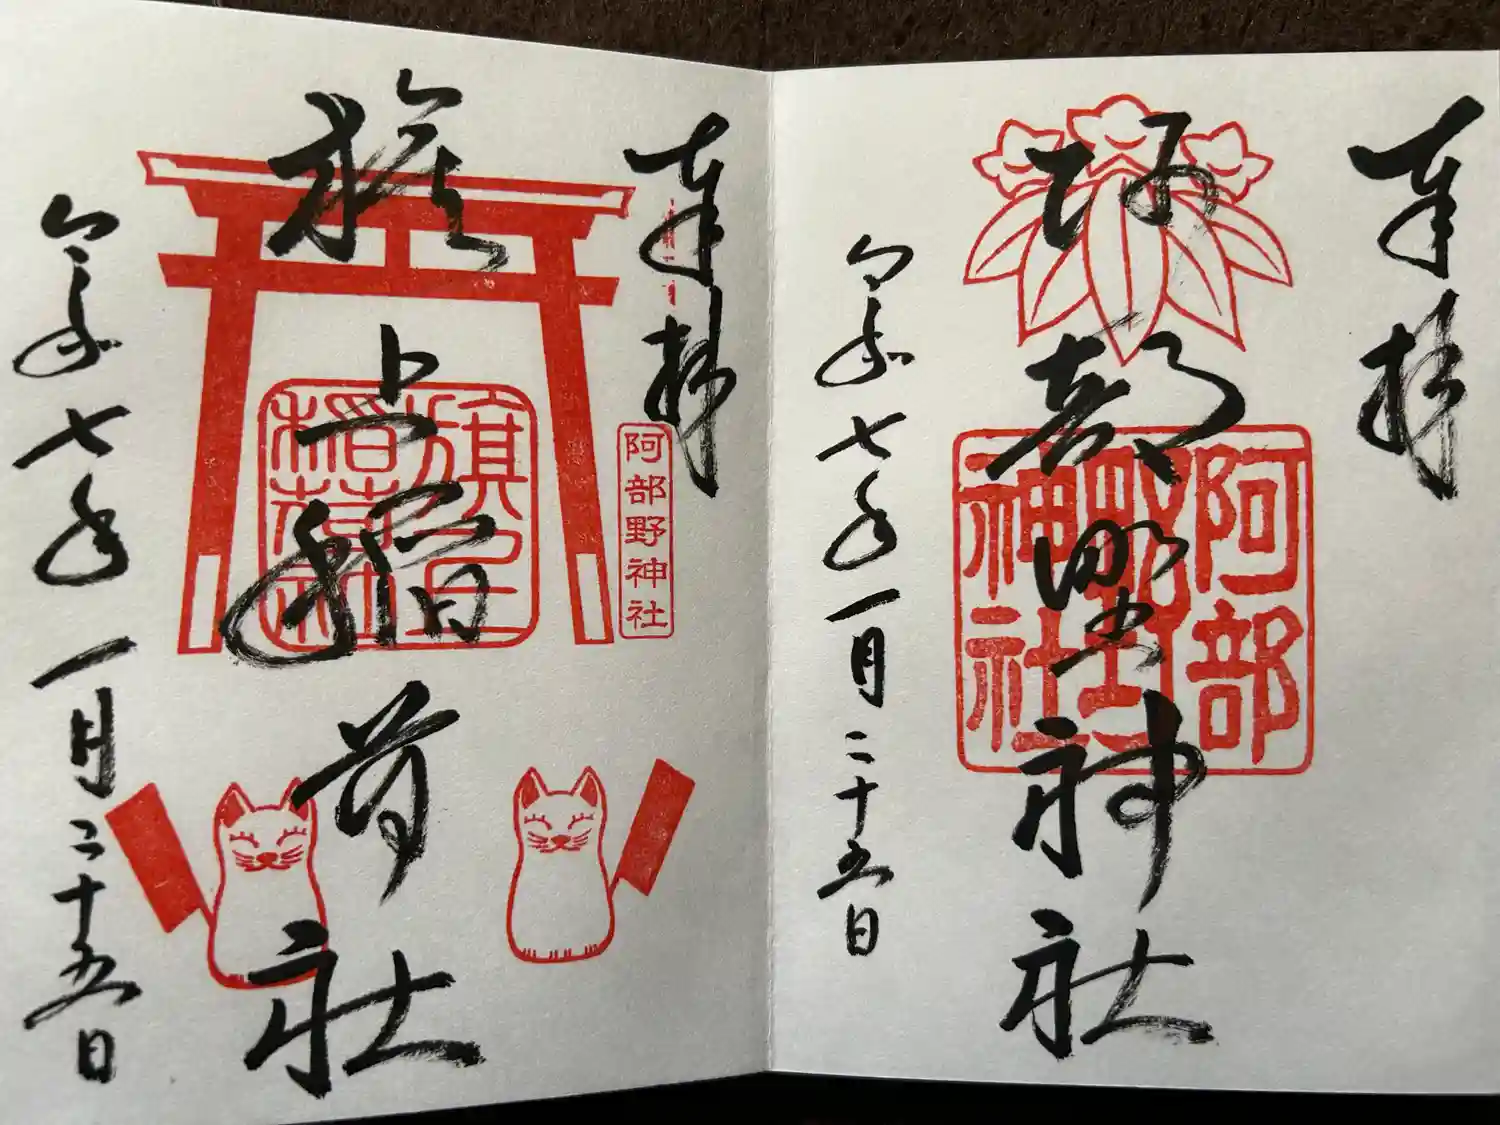 奉拝
阿部野神社
阿部
野
神社
令和七年一月二十五日
奉拝
阿部野神社
旗上稲荷社
旗上
稲荷社
令和七年一月二十五日